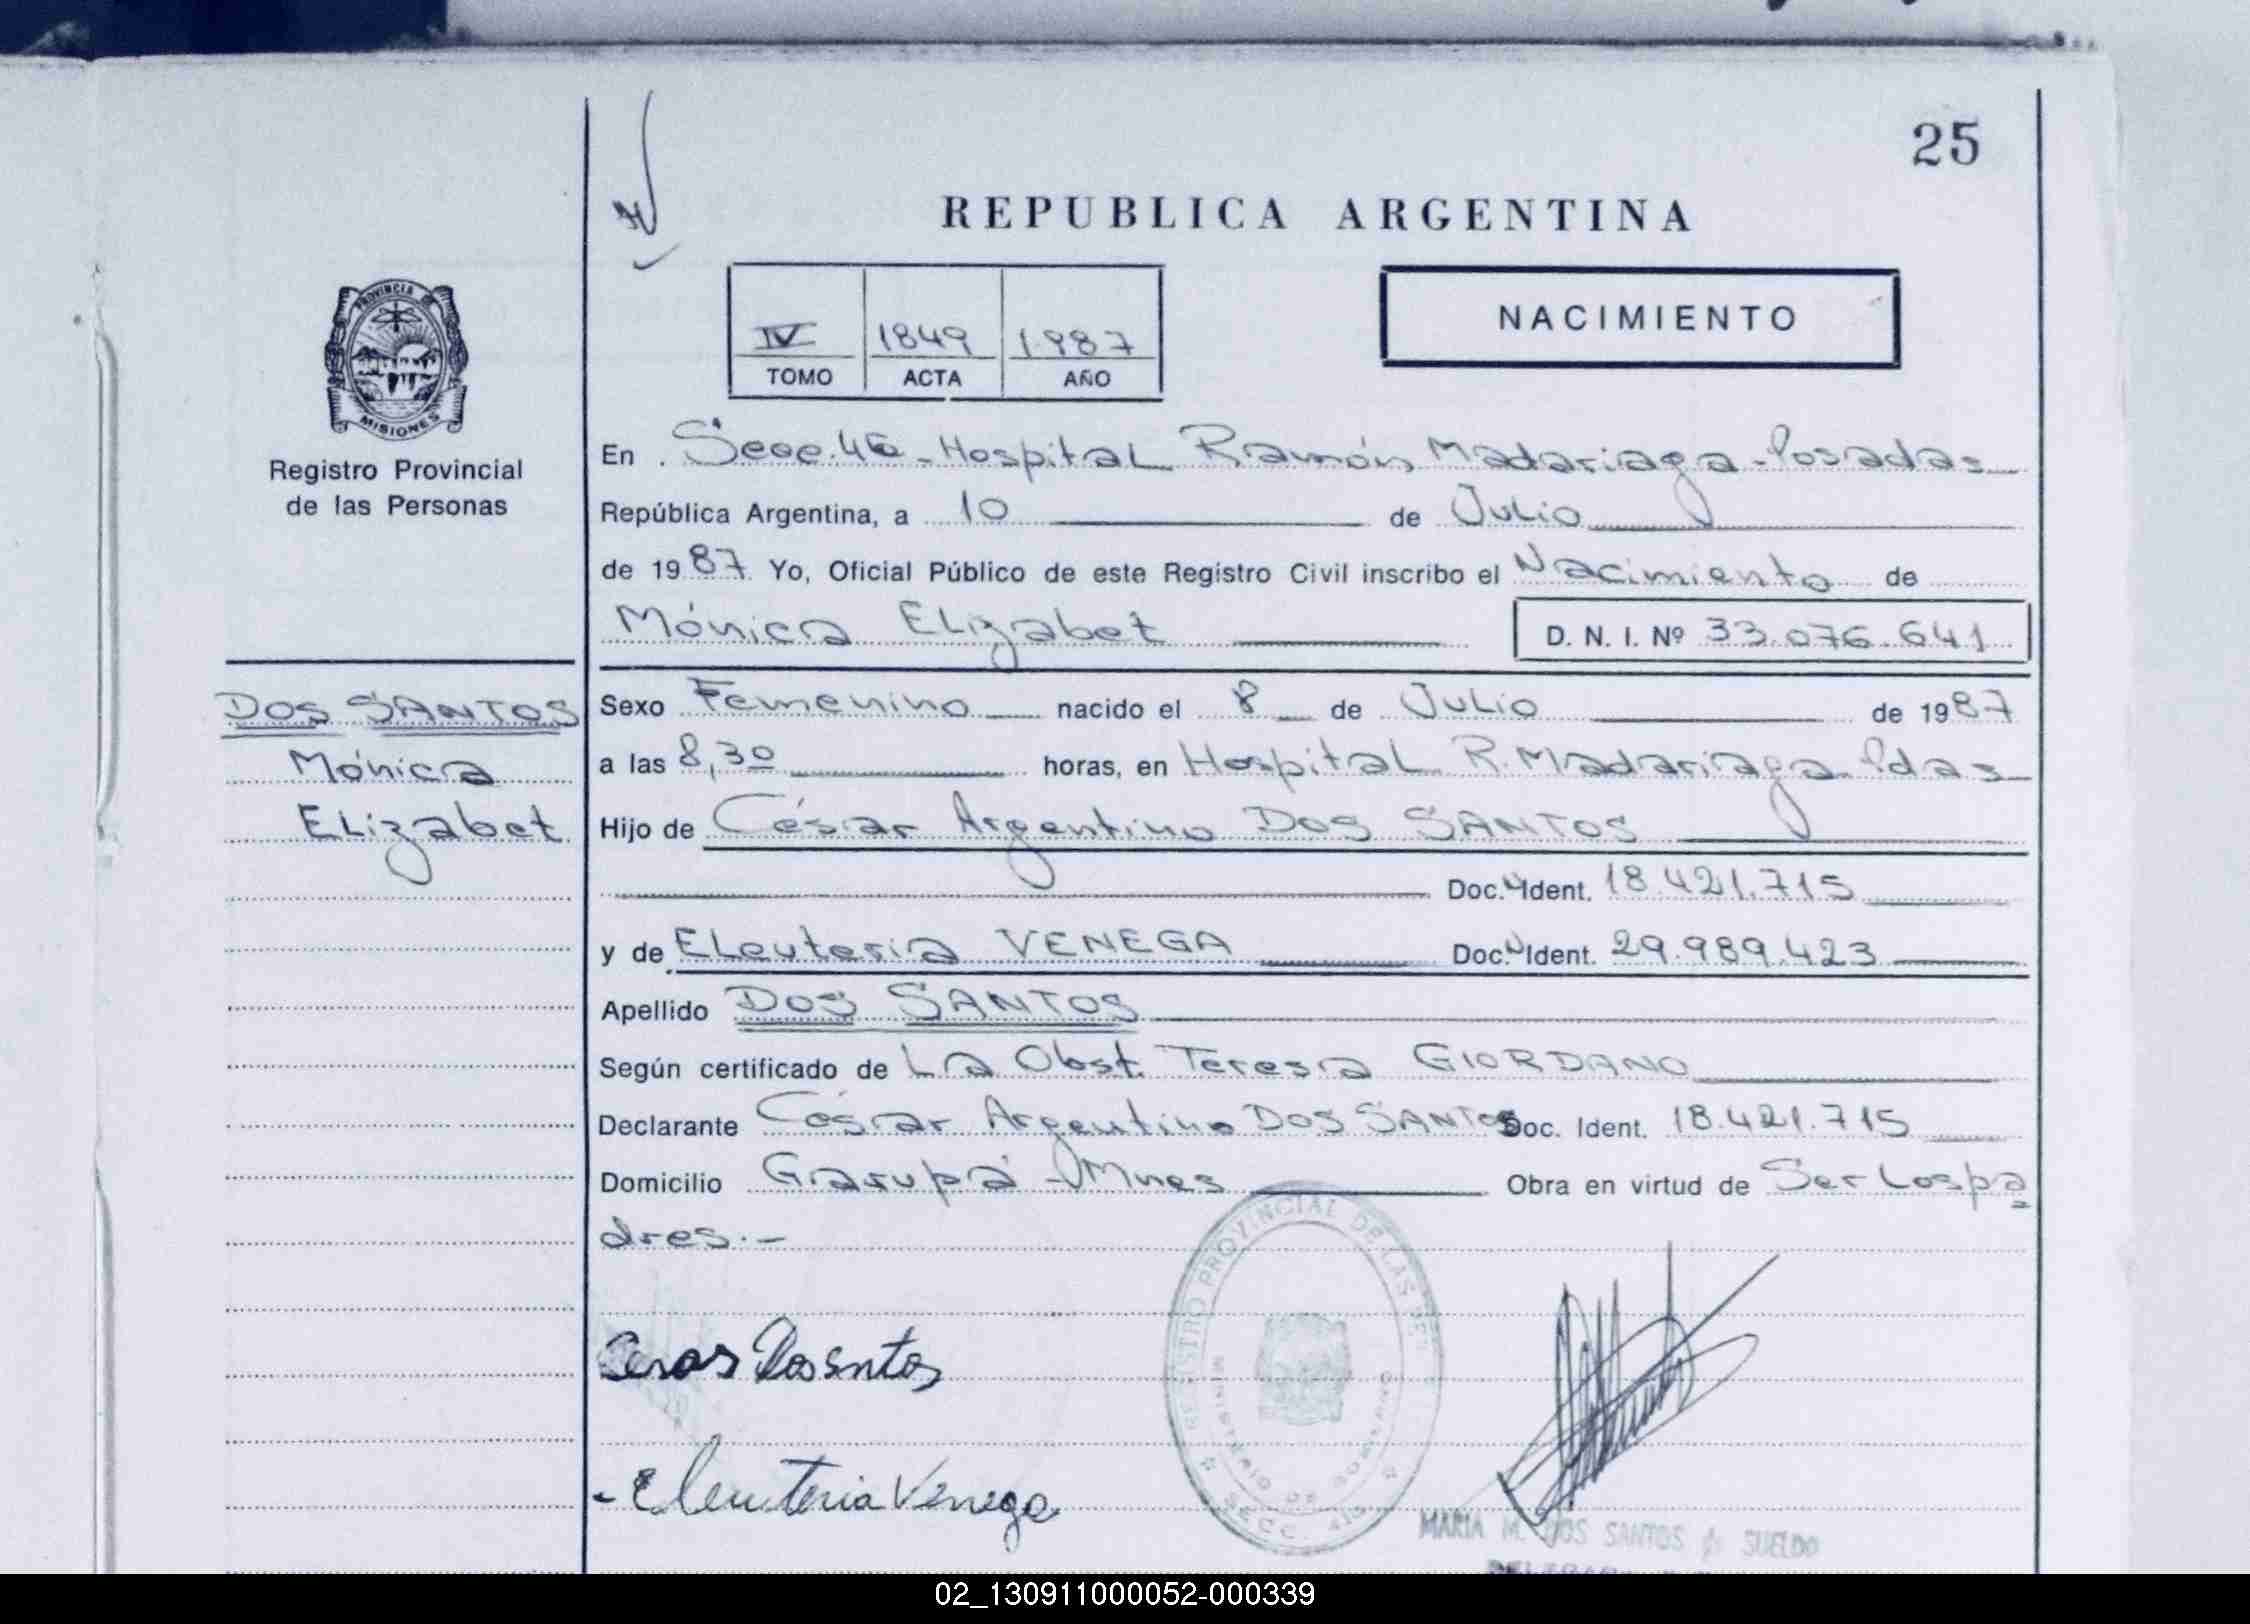 25
REPUBLICA ARGENTINA
IV 1849 1987
TOMO ACTA AÑO
NACIMIENTO
PROVINCIA DE
MISIONES
Registro Provincial
de las Personas
En Secc. 4a - Hospital Ramón Madariaga - Posadas
República Argentina, a 10 de Julio
de 1987 Yo, Oficial Público de este Registro Civil inscribo el Nacimiento de
Mónica Elizabet D. N. I. Nº 33.076.641
DOS SANTOS
Mónica
Elizabet
Sexo Femenino nacido el 8 de Julio de 1987
a las 8,30 horas, en Hospital R. Madariaga Pdas
Hijo de César Argentino DOS SANTOS
Doc. Ident. 18.421.715
y de Eleuteria VENEGA Doc. Ident. 29.989.423
Apellido DOS SANTOS
Según certificado de La Obst. Teresa GIORDANO
Declarante César Argentino DOS SANTOS Doc. Ident. 18.421.715
Domicilio Garupá - Mnes Obra en virtud de Ser los pa
dres.-
REGISTRO PROVINCIAL DE LAS PER
MINISTERIO DE GOBIERNO
SECC.
Dosantos
Eleuteria Venega
MARIA M. DOS SANTOS de SUELDO
02_130911000052-000339